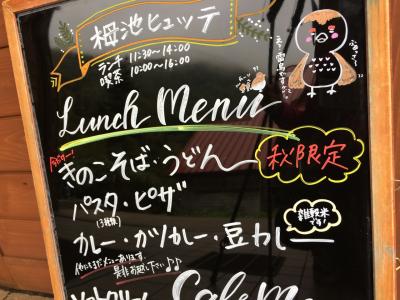 栂池ヒュッテ
ランチ 11:30~14:00
喫茶 10:00~16:00
Lunch Menu
きのこそば・うどん 秋限定
パスタ・ピザ
(3種類)
雑穀米です!
カレー・カツカレー・豆カレー
他にもまだメニューあります。
是非お越し下さい♪♪